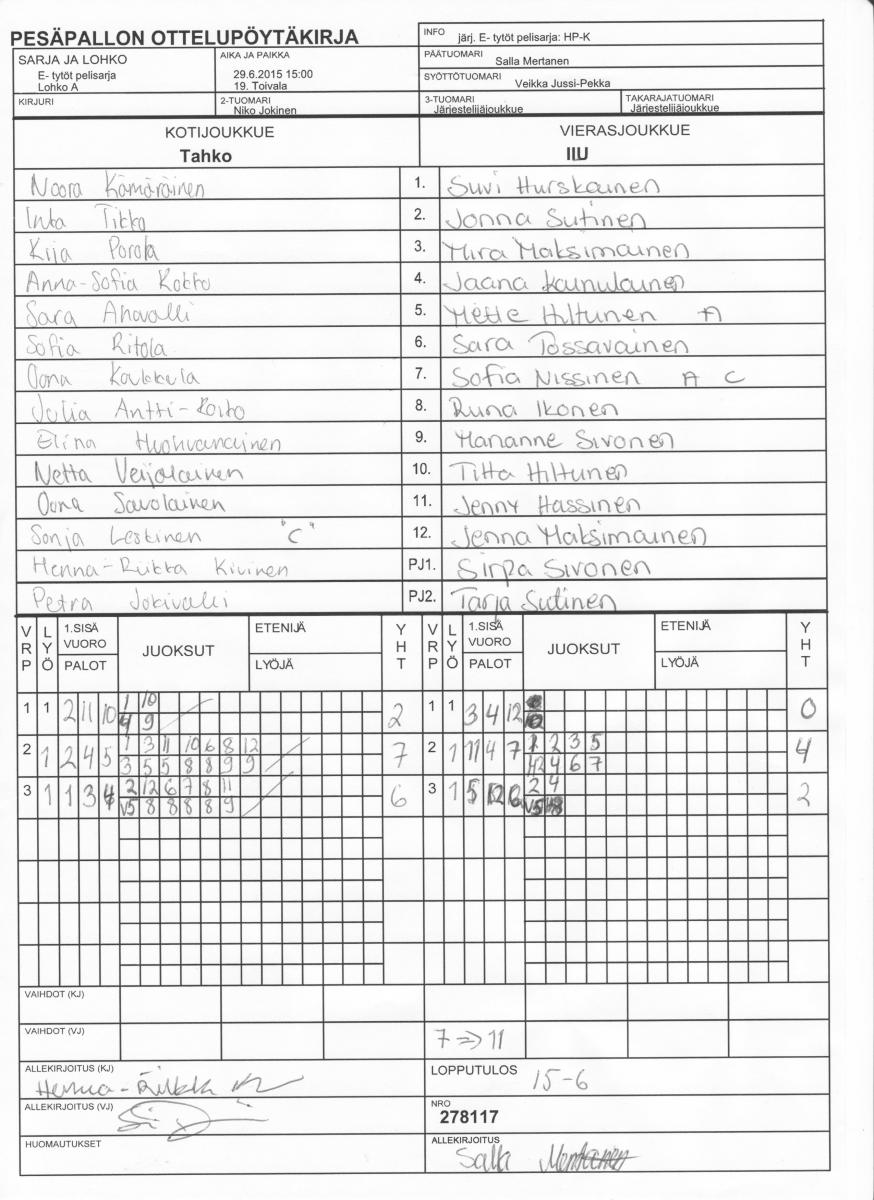 PESÄPALLON OTTELUPÖYTÄKIRJA
INFO järj. E- tytöt pelisarja: HP-K
SARJA JA LOHKO
E- tytöt pelisarja
Lohko A
AIKA JA PAIKKA
29.6.2015 15:00
19. Toivala
PÄÄTUOMARI Salla Mertanen
SYÖTTÖTUOMARI Veikka Jussi-Pekka
KIRJURI
2-TUOMARI
Niko Jokinen
3-TUOMARI
Järjestelijäjoukkue
TAKARAJATUOMARI
Järjestelijäjoukkue
KOTIJOUKKUE VIERASJOUKKUE
Tahko IIU
Noora Kämäräinen 1. Suvi Hurskainen
Inka Tikko 2. Jonna Sutinen
Kiia Porola 3. Mira Maksimainen
Anna-Sofia Kokko 4. Jaana Kainulainen
Sara Ahavalli 5. Mette Hiltunen A
Sofia Ritola 6. Sara Tossavainen
Oona Kaukkula 7. Sofia Nissinen A C
Julia Antti-Roiko 8. Runa Ikonen
Elina Huohvanainen 9. Marianne Sivonen
Netta Veijolainen 10. Titta Hiltunen
Oona Savolainen 11. Jenny Hassinen
Sonja Leskinen "C" 12. Jenna Maksimainen
Henna-Riikka Kivinen PJ1. Sirpa Sivonen
Petra Jokivalli PJ2. Tarja Sutinen
VRP LYÖ 1.SISÄ VUORO PALOT JUOKSUT ETENIJÄ LYÖJÄ YHT VRP LYÖ 1.SISÄ VUORO PALOT JUOKSUT ETENIJÄ LYÖJÄ YHT
1 1 2 11 10 1 10 2 1 1 3 4 12 0
4 9
2 1 2 4 5 1 3 11 10 6 8 12 7 2 1 11 4 7 1 2 3 5 4
3 5 5 8 8 9 9 12 4 6 7
3 1 1 3 4 2 12 6 7 8 11 6 3 1 5 12 6 2 4 2
V5 8 8 8 8 9 V5
VAIHDOT (KJ)
VAIHDOT (VJ) 7 => 11
ALLEKIRJOITUS (KJ) Henna-Riikka
LOPPUTULOS 15-6
ALLEKIRJOITUS (VJ)
NRO
278117
HUOMAUTUKSET
ALLEKIRJOITUS
Salla Mertanen